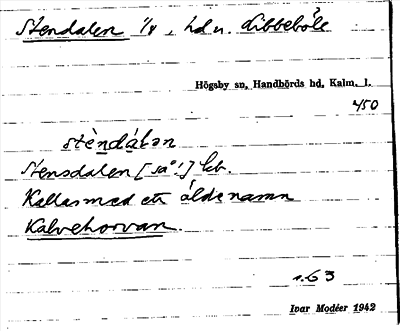 Stendalen 1/8, hd u. Libbeböle
Högsby sn, Handbörds hd, Kalm. l.
450
stèndálən
Stensdalen [så!] kb.
Kallas med ett äldre namn
Kalvehorvan.
s. 63
Ivar Modéer 1942